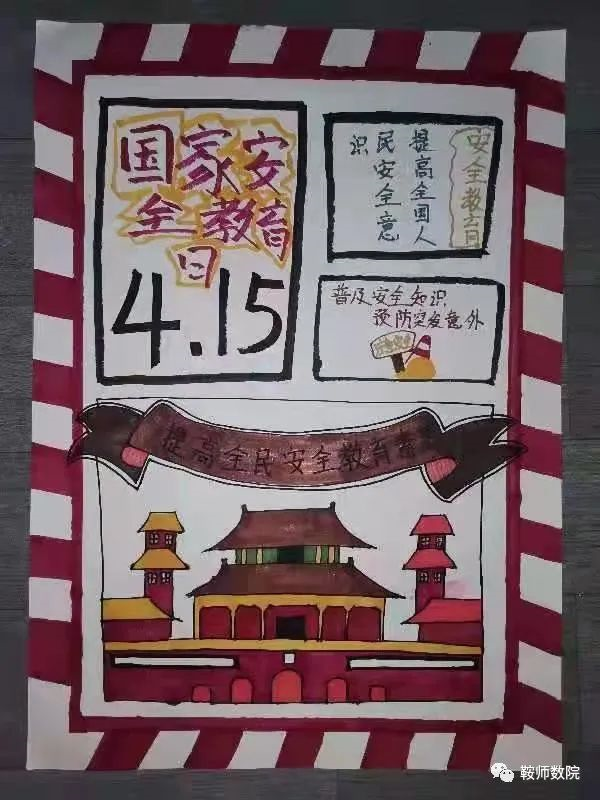 国家安
全教育
日
4.15
安全教育日
提高全国人
民安全意
识
普及安全知识
预防突发意外
提高全民安全教育
鞍师数院